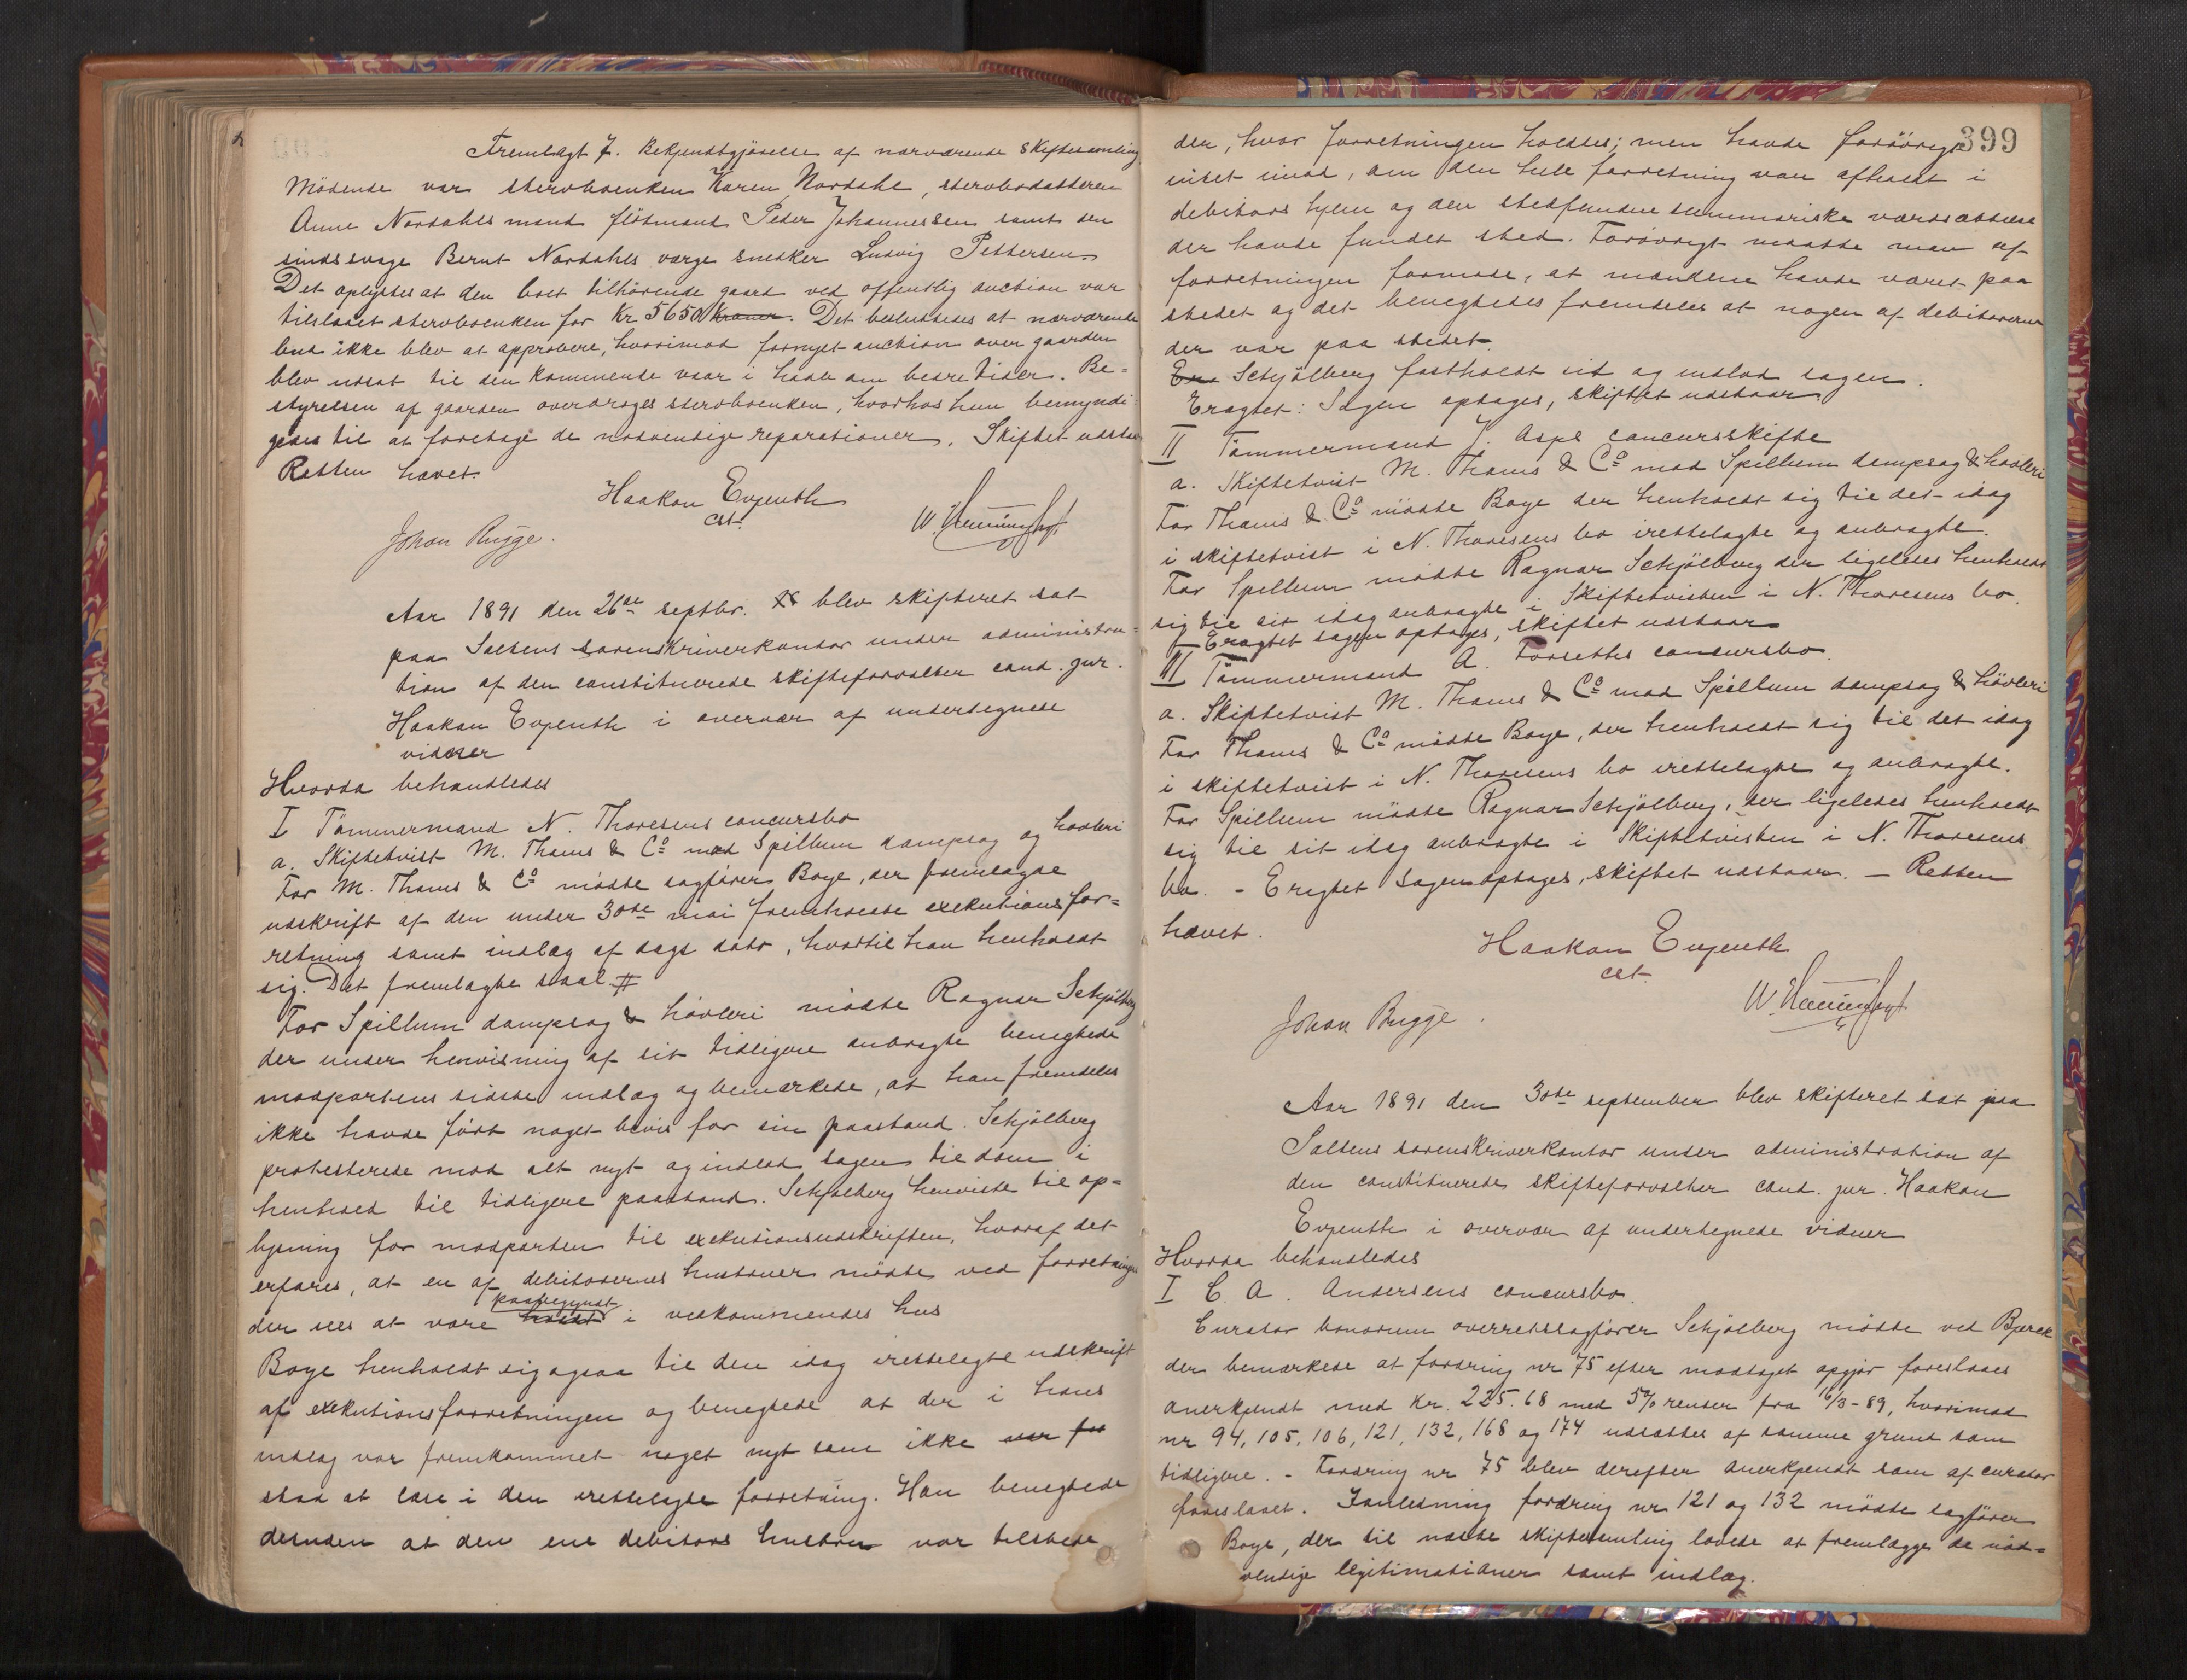 Fremlagt 7. Bekjendtgjörelse af nærværende skiftesamling
Mödende var stervboenken Karen Nordahl, stervbodatteren
Anne Nordahls mand flötmand Peder Johannessen samt den
sindssvage Bernt Nordahls værge snedker Ludvig Pettersen
Det oplystes at den boet tilhörende gaard ved offentlig auction var
tilslaaet stervboenken for Kr 5650 kroner. Det besluttedes at nærværende
bud ikke blev at approbere, hvorimod fornyet auction over gaarden
blev udsat til den kommende vaar i haab om bedre tider. Be-
styrelsen af gaarden overdroges stervboenken, hvorhos hun bemyndi-
gedes til at foretage de nödvendige reparationer. Skiftet udstaar
Retten hævet.
Haakon Evjenth
cst.
Johan Rygge.
Aar 1891 den 26de septbr. blev skifteret sat
paa Saltens sorenskriverkontor under administra-
tion af den constituerede skifteforvalter cand. jur.
Haakon Evjenth i overvær af undertegnede
vidner
Hvorda behandledes
I Tömmermand N. Thoresens concursbo
a. Skiftetvist M. Thams & Co mod Spillum dampsag og hövleri
For M. Thams & Co mödte sagförer Boye, der fremlagde
udskrift af den under 30te mai fremholdte exekutionsfor-
retning samt indlæg af dags dato, hvortil han henholdt
sig. Det fremlagte skal #
For Spillum dampsag & hövleri mödte Ragnar Schjölberg
der under henvisning af sit tidligere anbragte benegtede
modpartens sidste indlæg og bemærkede, at han fremdeles
ikke havde fört noget bevis for sin paastand. Schjölberg
protesterede mod alt nyt og indlod sagen til dom i
henhold til tidligere paastand. Schjölberg henviste til op-
lysning for modparten til exekutionsudskriften, hvoraf det
erfares, at en af debitorernes hustruer mödte ved forretningen
paabegyndt
der sees at være holdt i vedkommendes hus
Boye henholdt sig ogsaa til den idag irettelagte udskrift
af exekutionsforretningen og benegtede at der i hans
indlæg var fremkommet noget nyt som ikke var
stod at læse i den irettelagte forretning. Han benegtede
desuden at den ene debitors hustru var tilstede
399
der, hvor forretningen holdtes; men havde forövrigt
intet imod, om den hele forretning var afholdt i
debitors hjem og den stedfundne summariske værdsættelse
der havde fundet sted. Forövrigt maatte man af
forretningen formode, at mændene havde været paa
stedet og det benegtedes fremdeles at nogen af debitorerne
der var paa stedet.
Era Schjölberg fastholdt sit og indlod sagen.
Eragtet: Sagen optages, skiftet udstaar
II Tömmermand J. Aspe concursskifte
a. Skiftetvist M. Thams & Co mod Spillum dampsag & hövleri
For Thams & Co mödte Boye der henholdt sig til det idag
i skiftetvist i N. Thoresens bo irettelagte og anbragte.
For Spillum mödte Ragnar Schjölberg der ligeledes henholdt
sig til sit idag anbragte i Skiftetvisten i N. Thoresens bo.
– Eragtet sagen optages, skiftet udstaar
III Tömmermand A. Forseths concursbo.
a. Skiftetvist M. Thams & Co mod Spillum dampsag & hövleri
For Thams & Co mödte Boye, der henholdt sig til det idag
i skiftetvist i N. Thoresens bo irettelagte og anbragte.
For Spillum mödte Ragnar Schjölberg, der ligeledes henholdt
sig til sit idag anbragte i Skiftetvisten i N. Thoresens
bo. – Eragtet Sagen optages, skiftet udstaar. – Retten
hævet.
Haakon Evjenth
cst.
Johan Brygge.
Aar 1891 den 30te september blev skifteret sat paa
Saltens sorenskriverkontor under administration af
den constituerede skifteforvalter cand. jur. Haakon
Evjenth i overvær af undertegnede vidner
Hvorda behandledes
I C. A. Andersens concursbo.
Curator bonorum overretssagförer Schjölberg mödte ved Bjerck
der bemærkede at fordring nr 75 efter modtaget opgjör foreslaaes
anerkjendt med Kr. 225.68 med 5% renter fra 16/3-89, hvorimod
nr 94, 105, 106, 121, 132, 168 og 174 udsættes af samme grund som
tidligere. – Fordring nr 75 blev derefter anerkjendt som af curator
foreslaaet. I anledning fordring nr 121 og 132 mödte sagförer
Boye, der til næste skiftesamling lovede at fremlægge de nöd-
vendige legitimationer samt indlæg.